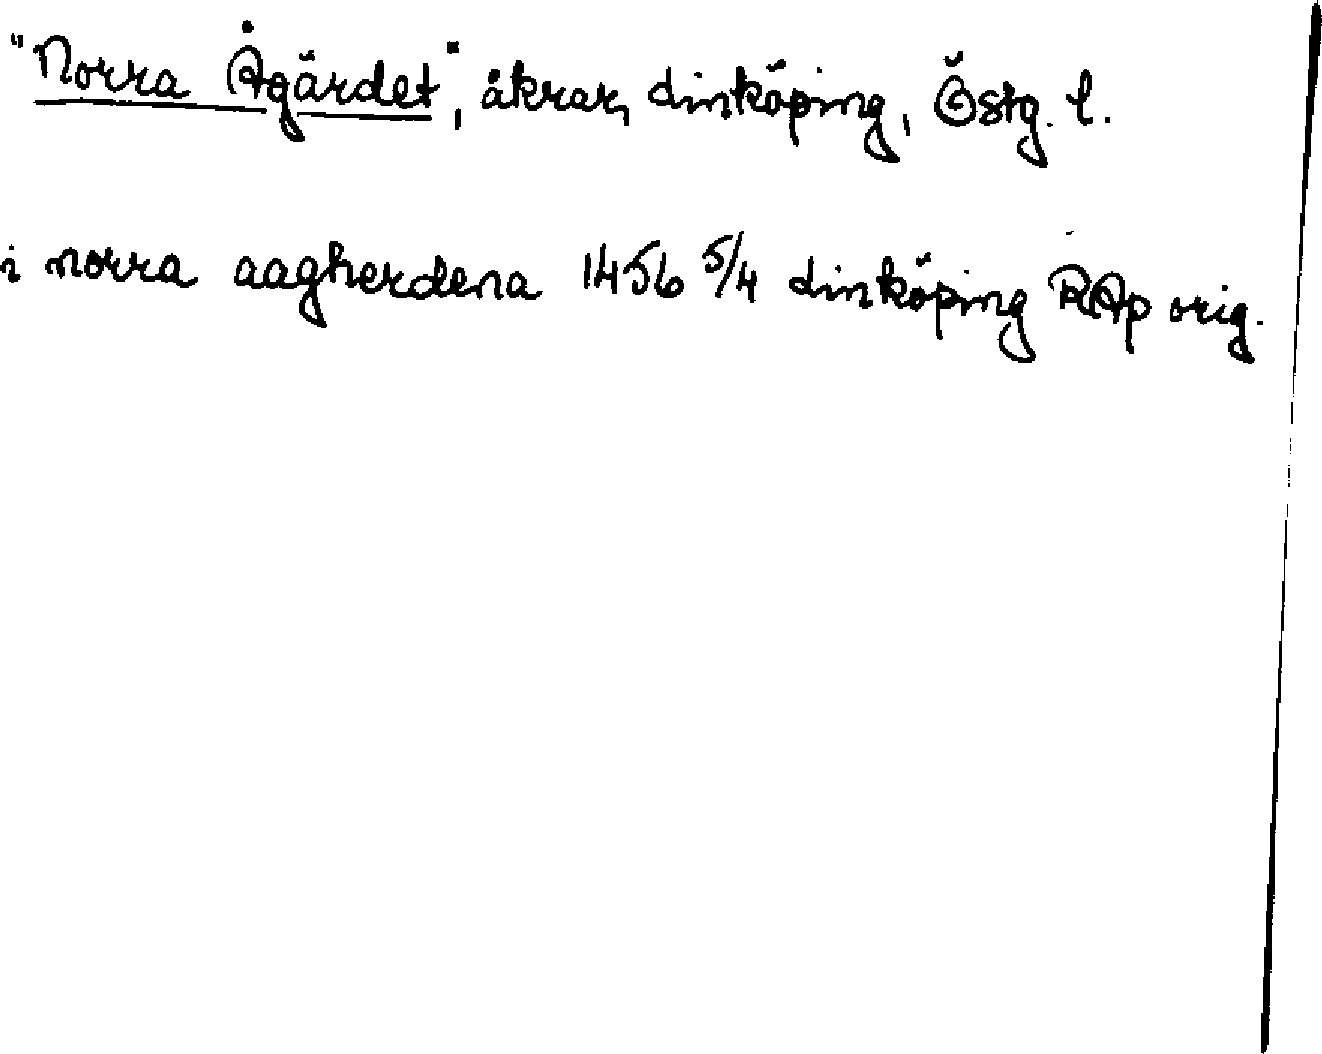 "Norra Ågärdet", åkrar, Linköping, Östg. l.
i norra aagherdena 1456 5/4 Linköping RAp orig.